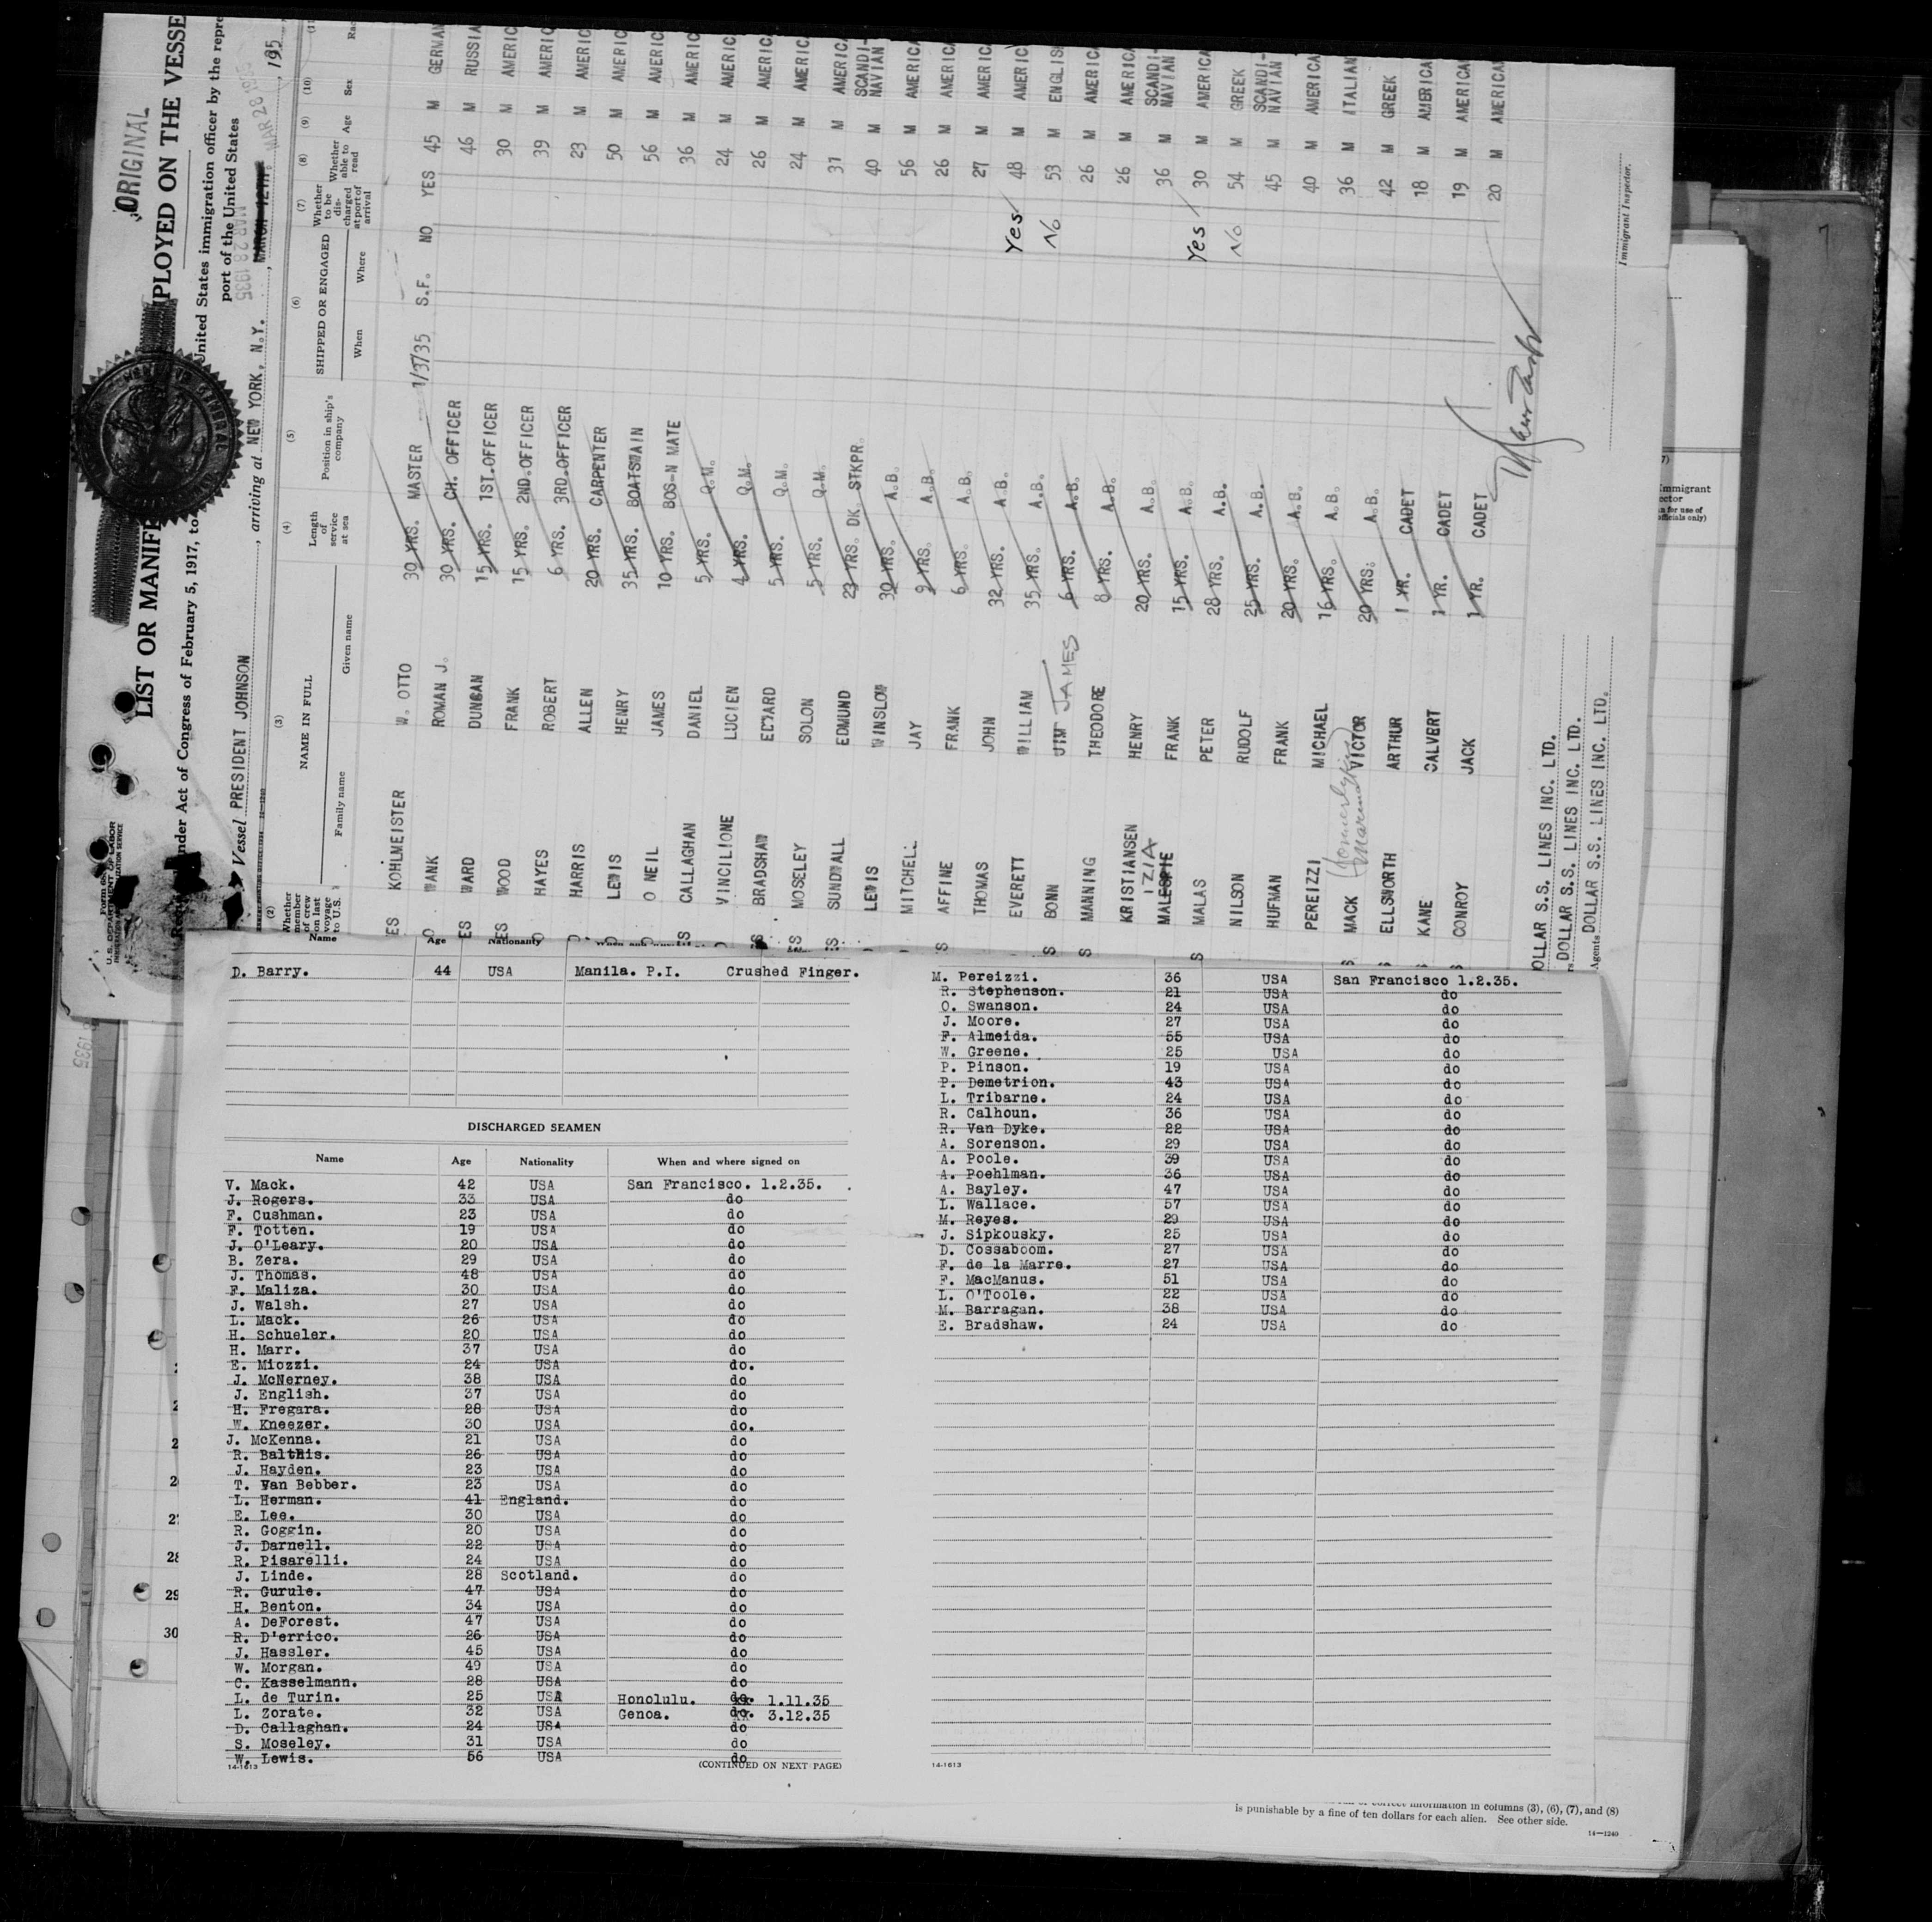 ORIGINAL
LIST OR MANIFE
PLOYED ON THE VESSE
nder Act of Congress of February 5, 1917, to
United States immigration officer by the repre
port of the United States
MAR 28 1935
U.S. DEPARTMENT OF LABOR
Vessel PRESIDENT JOHNSON , arriving at NEW YORK, N.Y. , MARCH 12TH. MAR 28 1935 , 195
(2) (3) (4) (5) (6) (7) (8) (9) (10)
Whether member of crew on last voyage to U.S. NAME IN FULL Length of service at sea Position in ship's company SHIPPED OR ENGAGED Whether to be discharged at port of arrival Whether able to read Age Sex
Family name Given name When Where
ES KOHLMEISTER W. OTTO 30 YRS. MASTER 1/3/35 S.F. NO YES 45 M GERMAN
O WANK ROMAN J. 30 YRS. CH. OFFICER 46 M RUSSIA
ES WARD DUNCAN 15 YRS. 1ST.OFFICER 30 M AMERIC
ES WOOD FRANK 15 YRS. 2ND.OFFICER 39 M AMERIC
O HAYES ROBERT 6 YRS. 3RD.OFFICER 23 M AMERIC
O HARRIS ALLEN 20 YRS. CARPENTER 50 M AMERIC
LEWIS HENRY 35 YRS. BOATSWAIN 56 M AMERIC
O NEIL JAMES 10 YRS. BOS-N MATE 36 M AMERIC
S CALLAGHAN DANIEL 5 YRS. Q.M. 24 M AMERIC
VINCILIONE LUCIEN 4 YRS. Q.M. 26 M AMERIC
ES BRADSHAW EDWARD 5 YRS. Q.M. 24 M AMERIC
ES MOSELEY SOLON 5 YRS. Q.M. 31 M AMERIC
S SUNDWALL EDMUND 23 YRS. DK. STKPR. 40 M SCANDI-NAVIAN
LEWIS WINSLOW 30 YRS. A.B. 56 M AMERICA
MITCHELL JAY 9 YRS. A.B. 26 M AMERICA
S AFFINE FRANK 6 YRS. A.B. 27 M AMERIC
THOMAS JOHN 32 YRS. A.B. Yes 48 M AMERIC
EVERETT WILLIAM 35 YRS. A.B. No 53 M ENGLISH
S BONN JIM JAMES 6 YRS. A.B. 26 M AMERIC
S MANNING THEODORE 8 YRS. A.B. 26 M AMERICA
KRISTIANSEN HENRY 20 YRS. A.B. 36 M SCANDI-NAVIAN
MALESPIE IZIA FRANK 15 YRS. A.B. Yes 30 M AMERICA
S MALAS PETER 28 YRS. A.B. No 54 M GREEK
NILSON RUDOLF 25 YRS. A.B. 45 M SCANDI-NAVIAN
HUFMAN FRANK 20 YRS. A.B. 40 M AMERICA
PEREIZZI MICHAEL 16 YRS. A.B. 36 M ITALIAN
S MACK VICTOR 20 YRS. A.B. 42 M GREEK
S ELLSWORTH ARTHUR 1 YR. CADET 18 M AMERICA
S KANE CALVERT 1 YR. CADET 19 M AMERICA
S CONROY JACK 1 YR. CADET 20 M AMERICAN
OLLAR S.S. LINES INC. LTD.
DOLLAR S.S. LINES INC. LTD.
Agents DOLLAR S.S. LINES INC. LTD.
Immigrant Inspector.
Name Age Nationality
D. Barry. 44 USA Manila. P.I. Crushed Finger.
DISCHARGED SEAMEN
Name Age Nationality When and where signed on
V. Mack. 42 USA San Francisco. 1.2.35.
J. Rogers. 33 USA do
F. Cushman. 23 USA do
F. Totten. 19 USA do
J. O'Leary. 20 USA do
B. Zera. 29 USA do
J. Thomas. 48 USA do
F. Maliza. 30 USA do
J. Walsh. 27 USA do
L. Mack. 26 USA do
H. Schueler. 20 USA do
H. Marr. 37 USA do
E. Miozzi. 24 USA do.
J. McNerney. 38 USA do
J. English. 37 USA do
H. Fregara. 28 USA do
W. Kneezer. 30 USA do.
J. McKenna. 21 USA do
R. Balthis. 26 USA do
J. Hayden. 23 USA do
T. Van Bebber. 23 USA do
L. Herman. 41 England. do
E. Lee. 30 USA do
R. Goggin. 20 USA do
J. Darnell. 22 USA do
R. Pisarelli. 24 USA do
J. Linde. 28 Scotland. do
R. Gurule. 47 USA do
H. Benton. 34 USA do
A. DeForest. 47 USA do
R. D'errico. 26 USA do
J. Hassler. 45 USA do
W. Morgan. 49 USA do
C. Kasselmann. 28 USA do
L. de Turin. 25 USA Honolulu. do. 1.11.35
L. Zorate. 32 USA Genoa. do. 3.12.35
D. Callaghan. 24 USA do
S. Moseley. 31 USA do
W. Lewis. 56 USA do
14-1613 (CONTINUED ON NEXT PAGE)
M. Pereizzi. 36 USA San Francisco 1.2.35.
R. Stephenson. 21 USA do
O. Swanson. 24 USA do
J. Moore. 27 USA do
F. Almeida. 55 USA do
W. Greene. 25 USA do
P. Pinson. 19 USA do
P. Demetrion. 43 USA do
L. Tribarne. 24 USA do
R. Calhoun. 36 USA do
R. Van Dyke. 22 USA do
A. Sorenson. 29 USA do
A. Poole. 39 USA do
A. Poehlman. 36 USA do
A. Bayley. 47 USA do
L. Wallace. 57 USA do
M. Reyes. 29 USA do
J. Sipkousky. 25 USA do
D. Cossaboom. 27 USA do
F. de la Marre. 27 USA do
F. MacManus. 51 USA do
L. O'Toole. 22 USA do
M. Barragan. 38 USA do
E. Bradshaw. 24 USA do
14-1613
28
29
30
information in columns (3), (6), (7), and (8)
is punishable by a fine of ten dollars for each alien. See other side.
14—1240